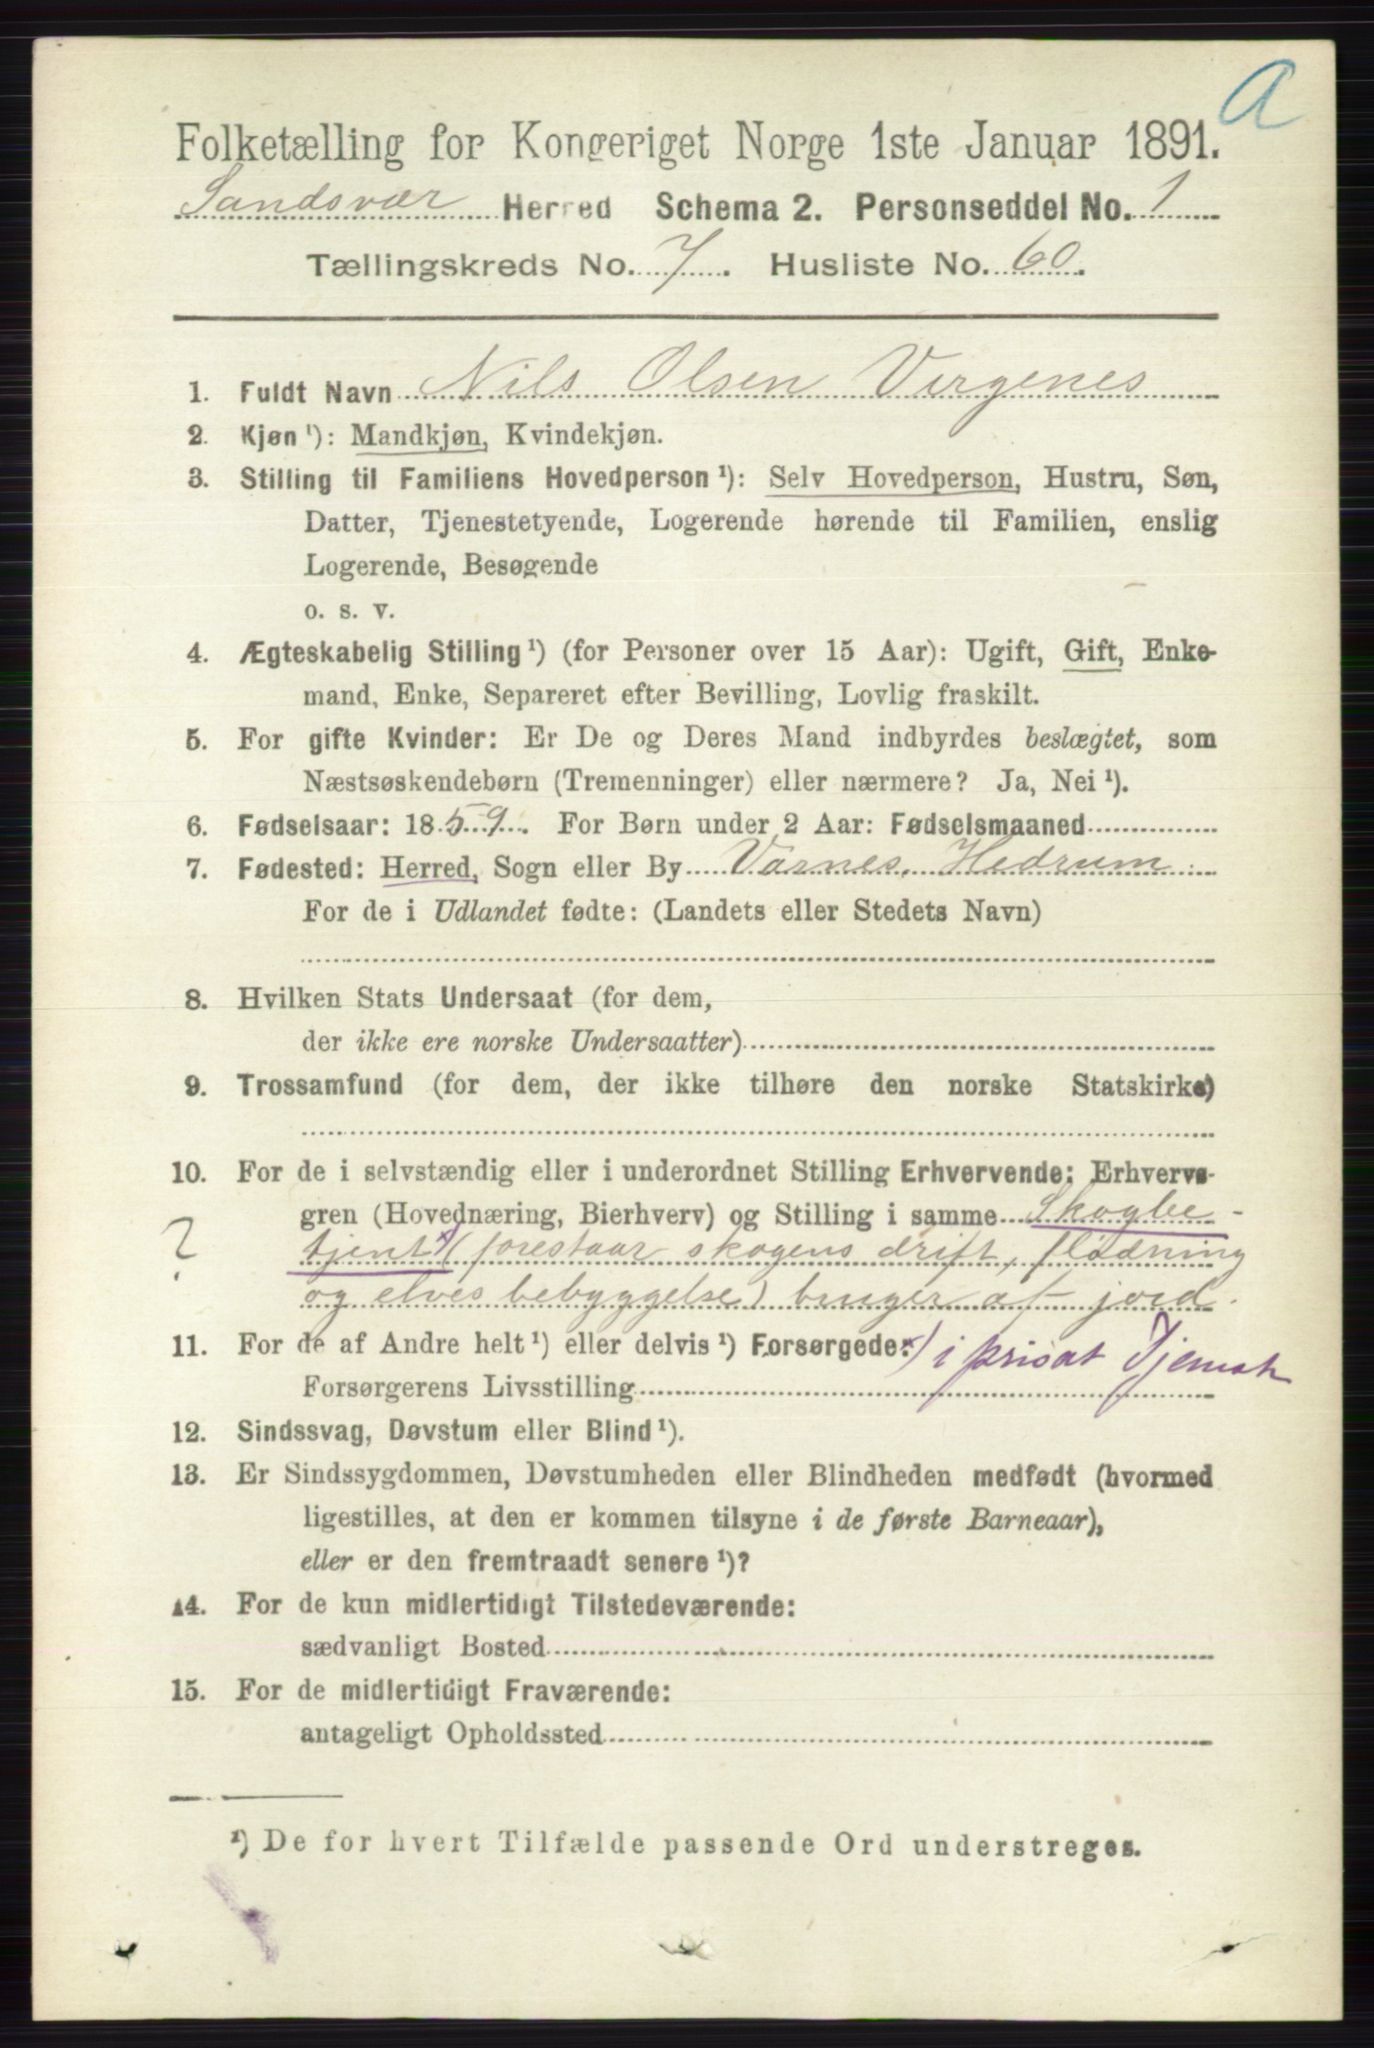 A
Folketælling for Kongeriget Norge 1ste Januar 1891.
Sandsvær Herred Schema 2. Personseddel No. 1
Tællingskreds No. 7. Husliste No. 60.
1. Fuldt Navn Nils Olsen Vergenes
2. Kjøn ¹): Mandkjøn, Kvindekjøn.
3. Stilling til Familiens Hovedperson ¹): Selv Hovedperson, Hustru, Søn,
Datter, Tjenestetyende, Logerende hørende til Familien, enslig
Logerende, Besøgende
o. s. v.
4. Ægteskabelig Stilling ¹) (for Personer over 15 Aar): Ugift, Gift, Enke-
mand, Enke, Separeret efter Bevilling, Lovlig fraskilt.
5. For gifte Kvinder: Er De og Deres Mand indbyrdes beslægtet, som
Næstsøskendebørn (Tremenninger) eller nærmere? Ja, Nei ¹).
6. Fødselsaar: 1859. For Børn under 2 Aar: Fødselsmaaned
7. Fødested: Herred, Sogn eller By Varnes, Hedrum
For de i Udlandet fødte: (Landets eller Stedets Navn)
8. Hvilken Stats Undersaat (for dem,
der ikke ere norske Undersaatter)
9. Trossamfund (for dem, der ikke tilhøre den norske Statskirke)
10. For de i selvstændig eller i underordnet Stilling Erhvervende: Erhvervs-
gren (Hovednæring, Bierhverv) og Stilling i samme Skogbe-
? tjent x) (forestaar skogens drift, flødning
og elves bebyggelse) bruger af jord.
11. For de af Andre helt ¹) eller delvis ¹) Forsørgede: x) i privat Tjeneste
Forsørgerens Livsstilling
12. Sindssvag, Døvstum eller Blind ¹).
13. Er Sindssygdommen, Døvstumheden eller Blindheden medfødt (hvormed
ligestilles, at den er kommen tilsyne i de første Barneaar),
eller er den fremtraadt senere ¹)?
14. For de kun midlertidigt Tilstedeværende:
sædvanligt Bosted
15. For de midlertidigt Fraværende:
antageligt Opholdssted
¹) De for hvert Tilfælde passende Ord understreges.